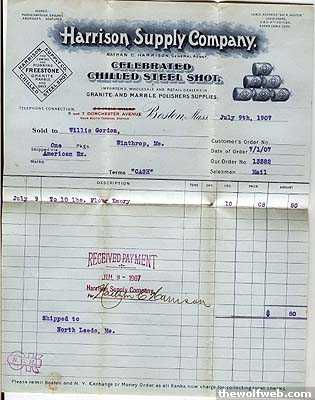 Harrison Supply Company.
NATHAN C. HARRISON, GENERAL AGENT
CELEBRATED
CHILLED STEEL SHOT.
IMPORTERS, WHOLESALE AND RETAIL DEALERS IN
GRANITE AND MARBLE POLISHERS SUPPLIES.
HARRISON SUPPLY CO.
FREESTONE
GRANITE
MARBLE
CHILLED STEEL SHOT
TELEPHONE CONNECTION.
5 and 7 DORCHESTER AVENUE
Boston, Mass. July 9th, 1907
Sold to Willis Gordon,
One Pkg. Winthrop, Me.
Shipped per American Ex.
Marks
Terms "CASH"
Customer's Order No.
Date of Order 7/1/07
Our Order No. 13382
Salesman Mail
DESCRIPTION
AMOUNT
July 9 To 10 lbs. Flour Emory 10 08 80
RECEIVED PAYMENT
1907
Harrison Supply Company
Per Nathan C Harrison
$ 80
Shipped to
North Leeds, Me.
Please remit Boston and N. Y. Exchange or Money Order as all Banks now charge for collecting local checks.
thewolfweb.com